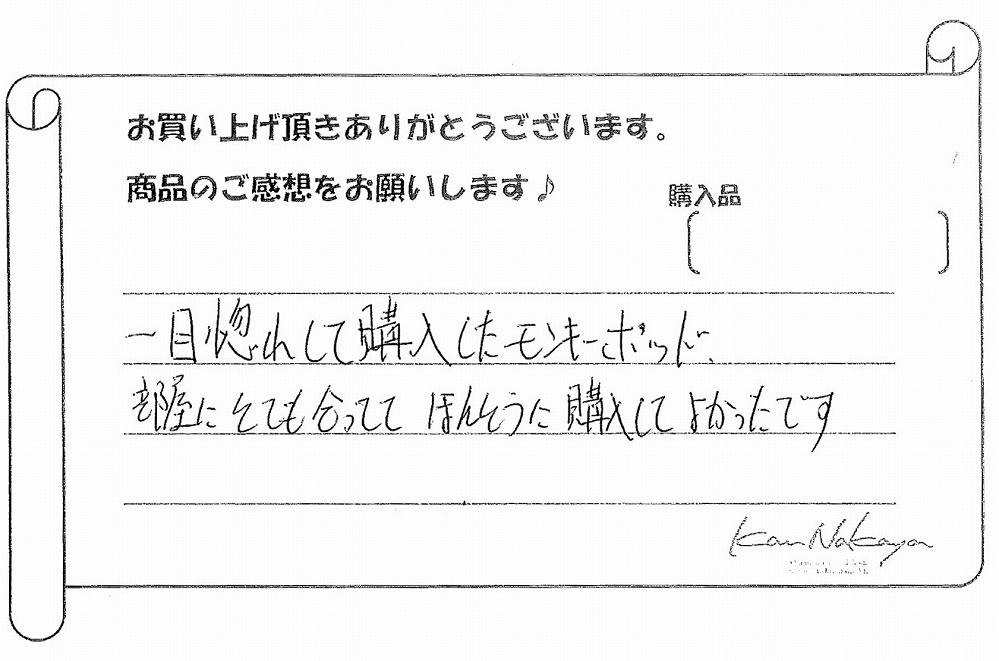 お買い上げ頂きありがとうございます。
商品のご感想をお願いします♪
購入品
一目惚れして購入したモンキーポッド、
部屋にとても合ってて ほんとうに購入してよかったです
Kan Nakaya